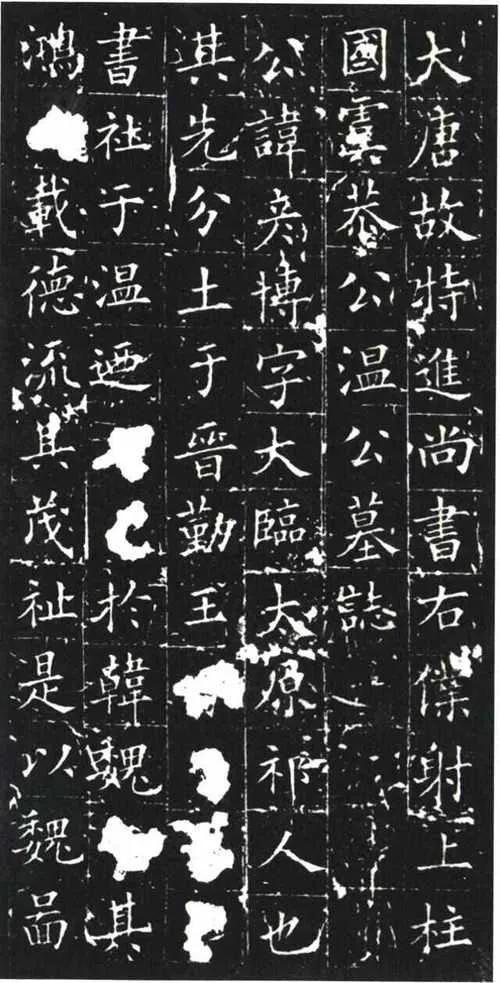 大唐故特進尚書右僕射上柱
國虞恭公温公墓誌
公諱彦博字大臨大原祁人也
其先分土于晉勤王
書社于温迺於韓魏其
鴻載德流其茂祉是以魏啚